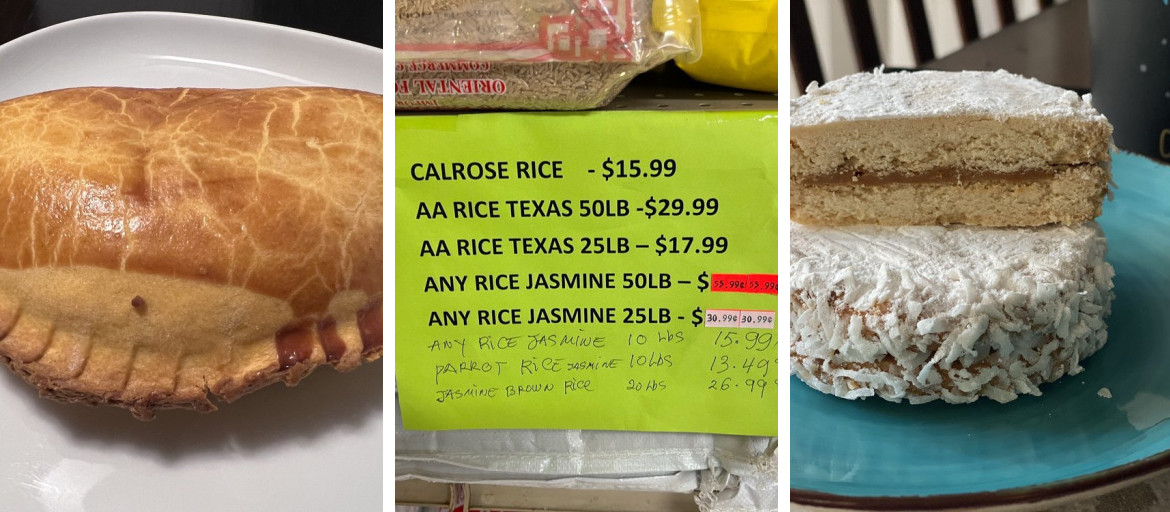 COMMERCE
ORIENTAL
CALROSE RICE - $15.99
AA RICE TEXAS 50LB -$29.99
AA RICE TEXAS 25LB – $17.99
ANY RICE JASMINE 50LB – $ 55.99¢ 55.99¢
ANY RICE JASMINE 25LB - $ 30.99¢ 30.99¢
ANY RICE JASMINE 10 lbs 15.99
PARROT RICE JASMINE 10 Lbs 13.49
JASMINE BROWN RICE 20 Lbs 26.99